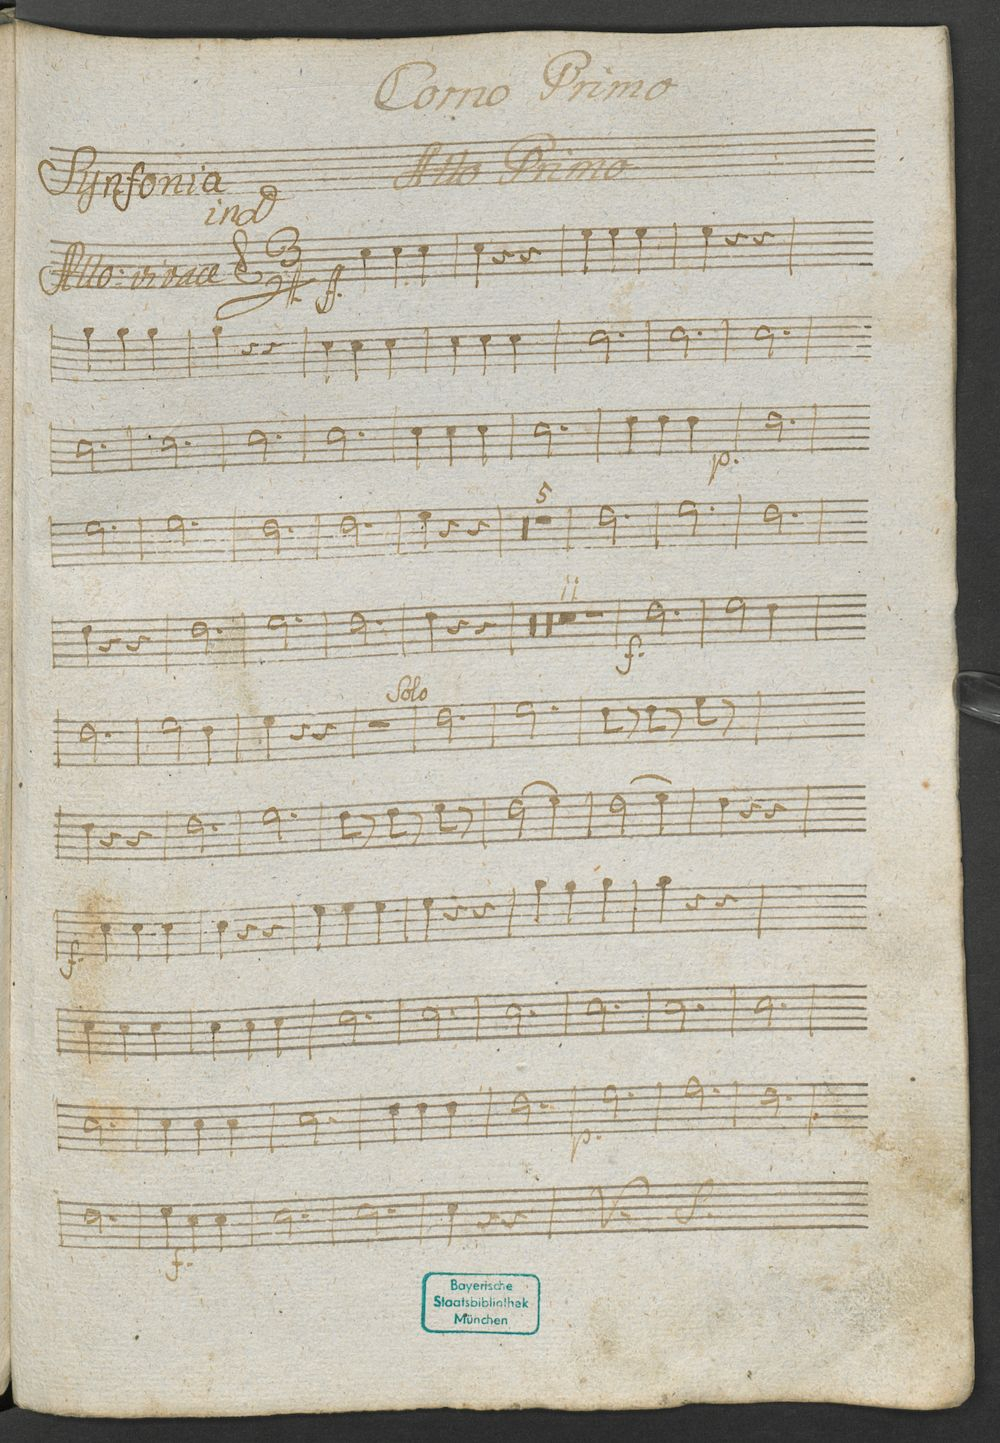 Corno Primo
Synfonia Atto Primo
in D
Allo: vivace 3 4 f.
p.
5
11
f.
Solo
f.
p. p.
V. S.
f.
Bayerische
Staatsbibliothek
München